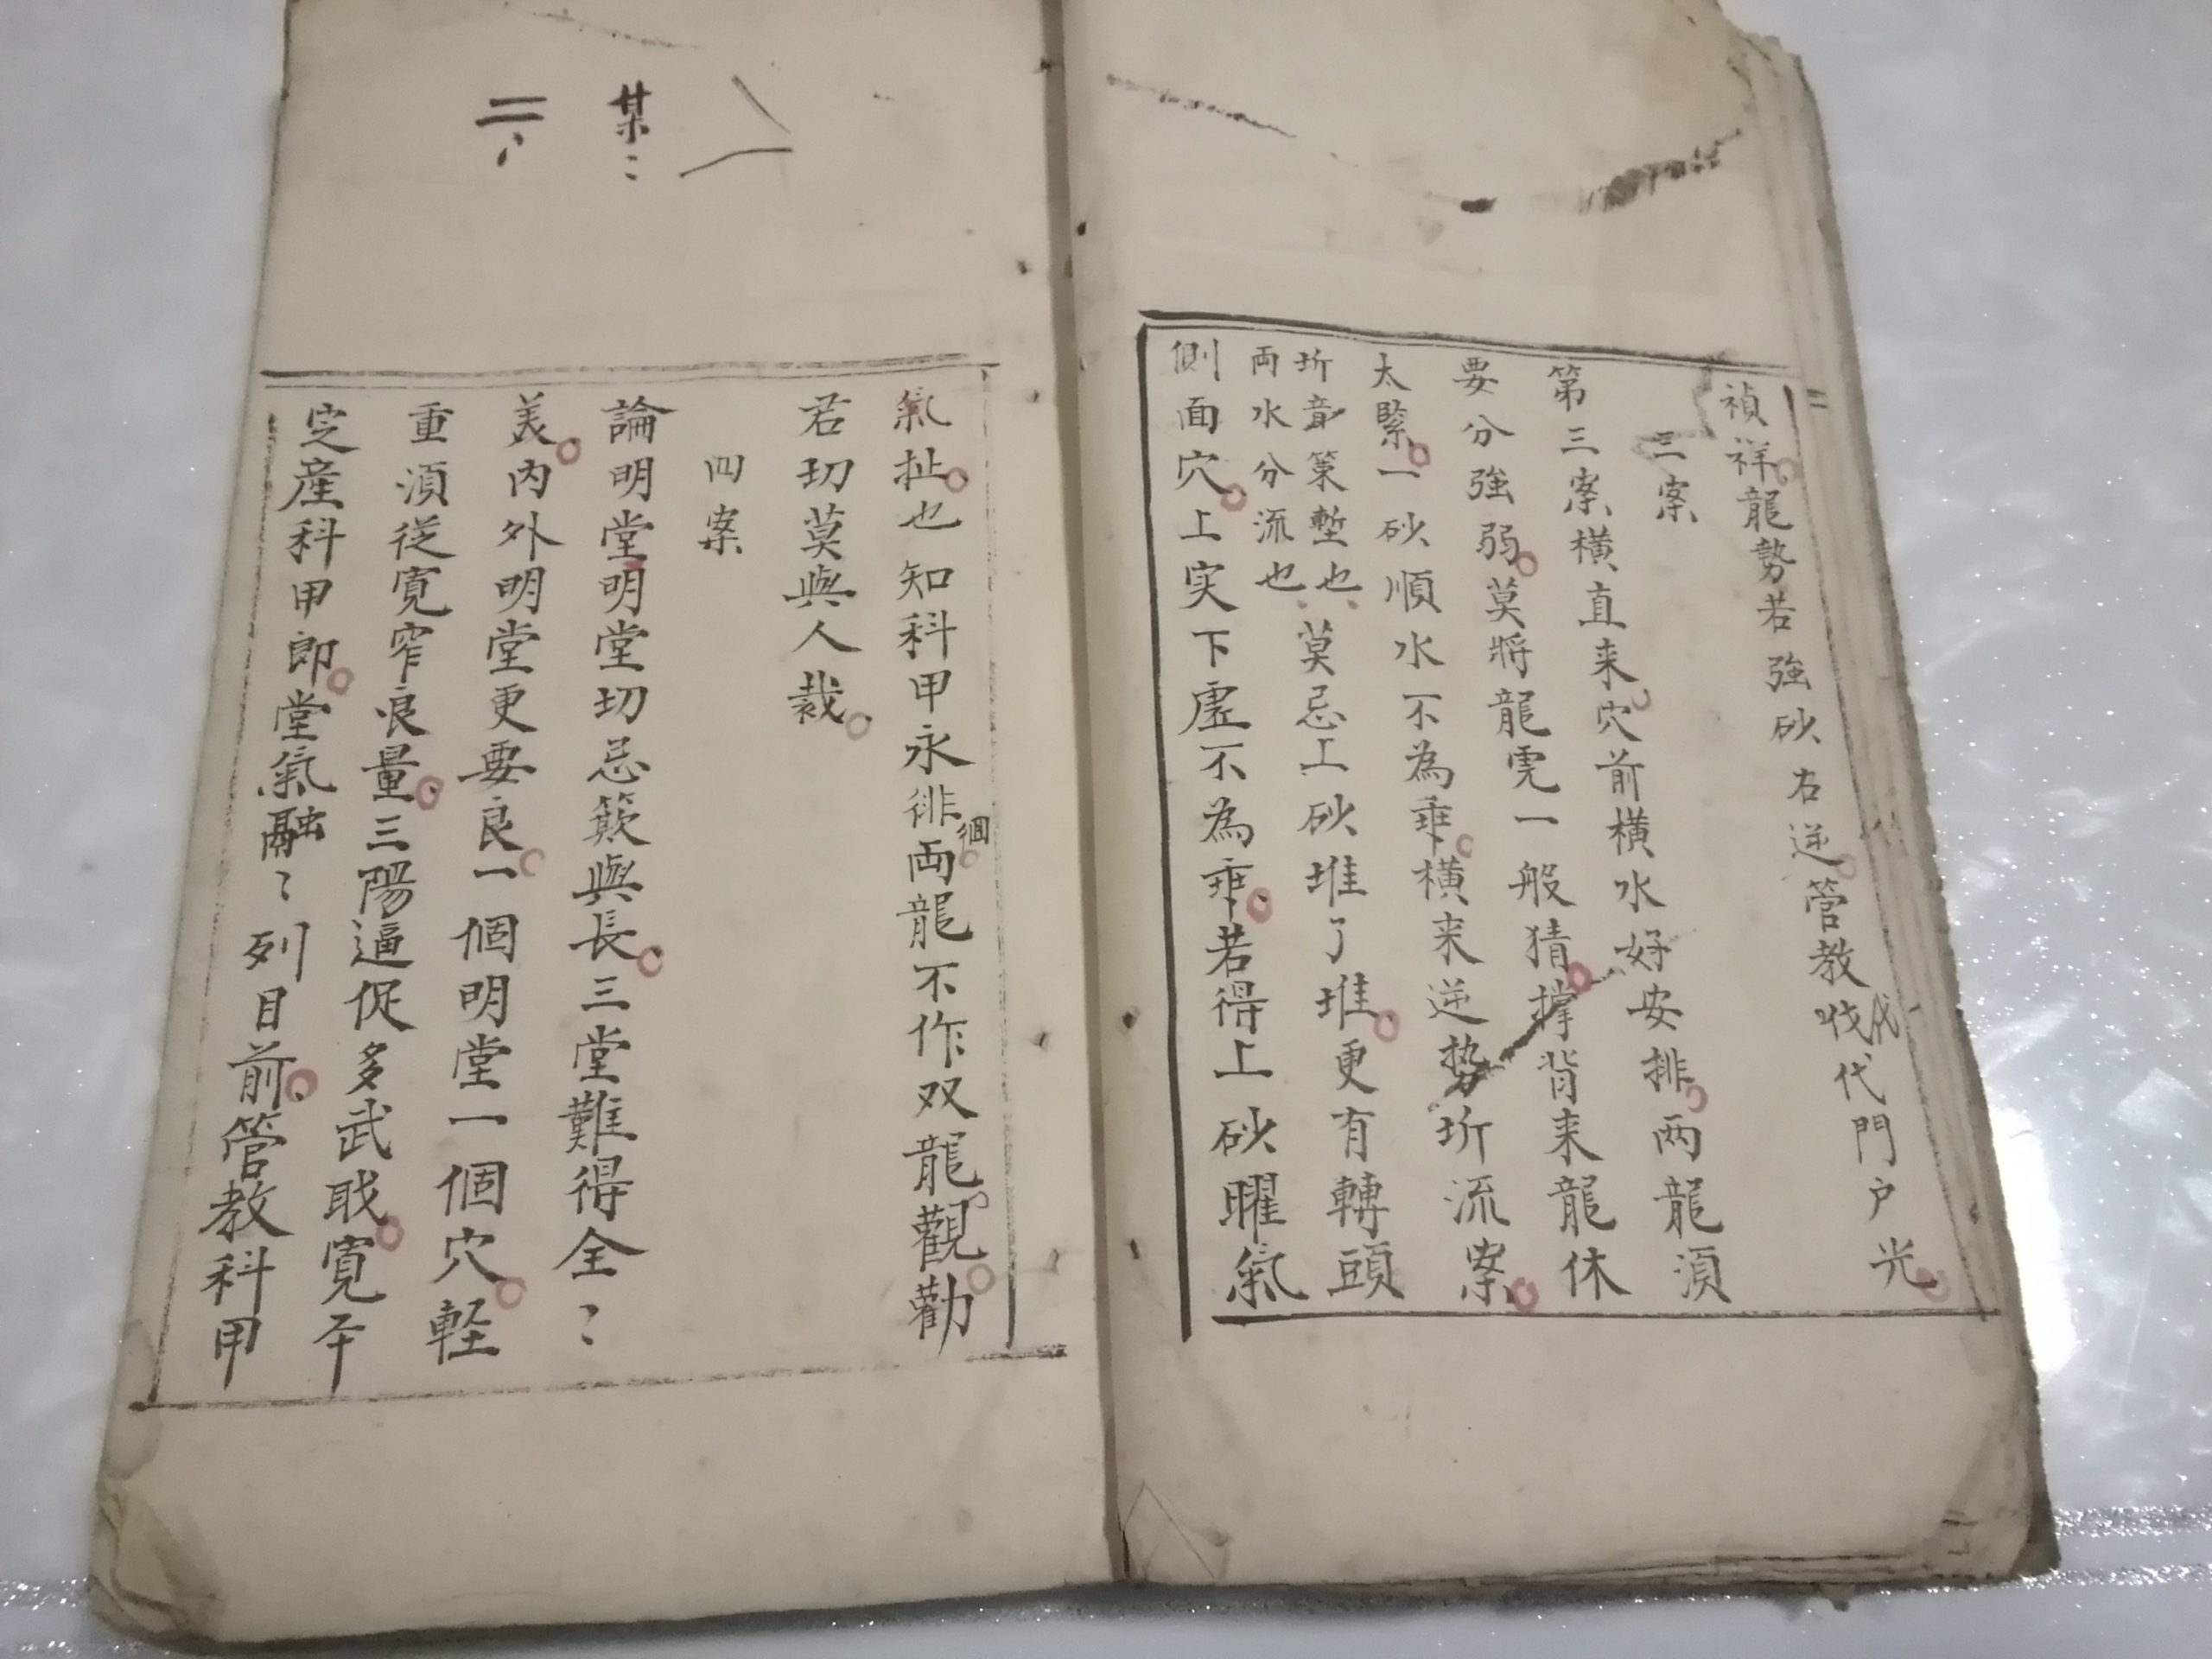 禎祥龍勢若強砂右逆管教代代門户光
三案
第三案横直来穴前横水好安排两龍湏
要分強弱莫將龍虎一般猜撑背来龍休
太緊一砂順水不為乖横来逆势圻流案
圻音策塹也
両水分流也
莫忌上砂堆了堆更有轉頭
側面穴上实下虚不為乖若得上砂曜氣
氣扯也知科甲永徘徊両龍不作双龍觀勸
若切莫與人裁
四案
論明堂明堂切忌簸與長三堂難得全〻
美内外明堂更要良一個明堂一個穴軽
重湏従寛窄良量三陽逼促多武戝寛平
定産科甲郎堂氣融〻列目前管教科甲
某〻
二〻